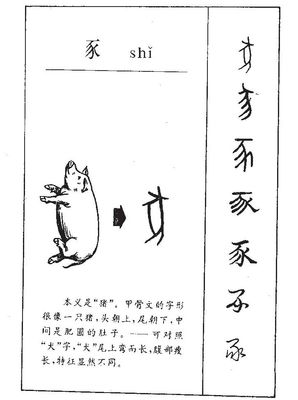 豕 shǐ
本义是“猪”。甲骨文的字形
很像一只猪,头朝上,尾朝下,中
间是肥圆的肚子。——可对照
“犬”字,“犬”尾上弯而长,腹部瘦
长,特征显然不同。
豕
豕